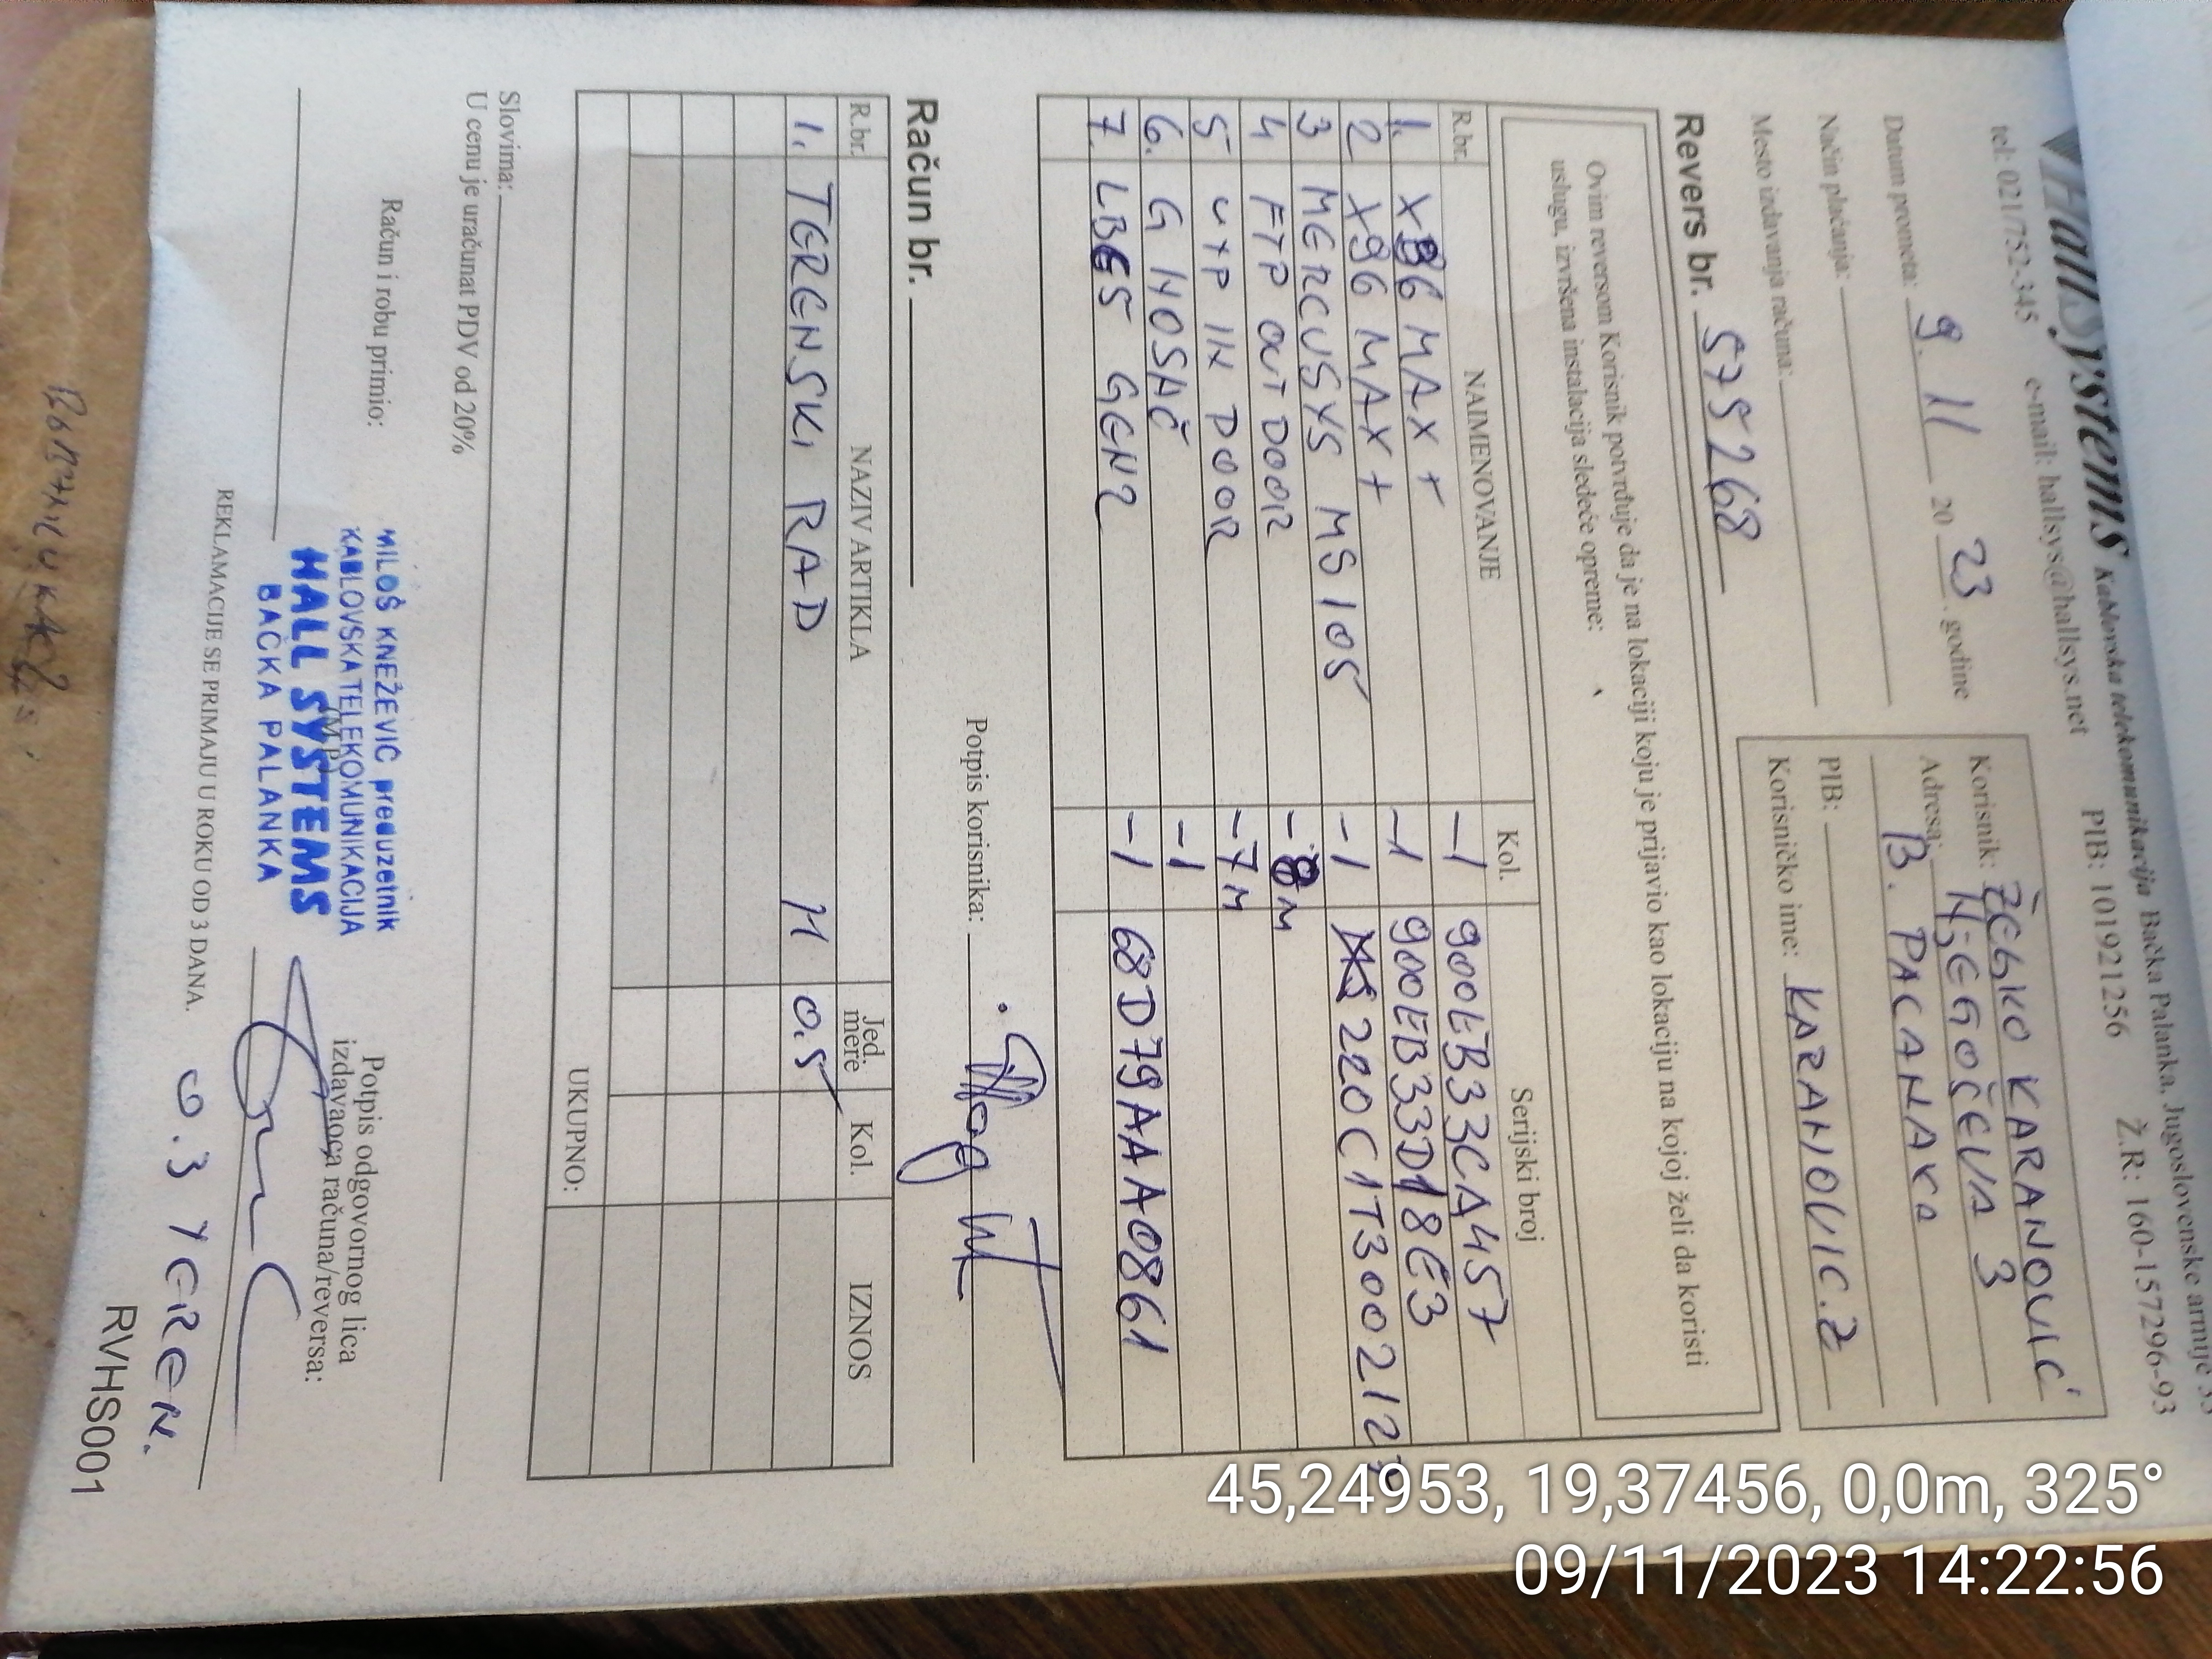 HallSystems Kablovska telekomunikacija Bačka Palanka, Jugoslovenske armije
tel: 021/752-345 e-mail: hallsys@hallsys.net PIB: 101921256 Ž.R: 160-157296-93
Datum prometa: 9. 11 20 23. godine
Način plaćanja:
Mesto izdavanja računa:
Korisnik: ŽELJKO KARANOVIĆ
Adresa: NJEGOŠEVA 3
B. PALANKA
PIB:
Korisničko ime: KARANOVIC.Z
Revers br. 575268
Ovim reversom Korisnik potvrđuje da je na lokaciji koju je prijavio kao lokaciju na kojoj želi da koristi
uslugu, izvršena instalacija sledeće opreme:
R.br. NAIMENOVANJE Kol. Serijski broj
1. X96 MAX + -1 900EB33CA457
2 X96 MAX + -1 900EB33D18E3
3 MERCUSYS MS105 -1 220C1T3002127
4 FTP OUTDOOR -8M
5 UTP INDOOR -7M
6. G NOSAČ -1
7. LBE5 GEN2 -1 68D79AAA0861
Potpis korisnika:
Račun br.
R.br. NAZIV ARTIKLA Jed. mere Kol. IZNOS
1. TERENSKI RAD H 0.5
UKUPNO:
Slovima:
U cenu je uračunat PDV od 20%
Račun i robu primio:
MILOŠ KNEŽEVIĆ preduzetnik
KABLOVSKA TELEKOMUNIKACIJA
HALL SYSTEMS
BAČKA PALANKA
(M.P.)
Potpis odgovornog lica
izdavaoca računa/reversa:
REKLAMACIJE SE PRIMAJU U ROKU OD 3 DANA.
0.3 TEREN.
RVHS001
45,24953, 19,37456, 0,0m, 325°
09/11/2023 14:22:56